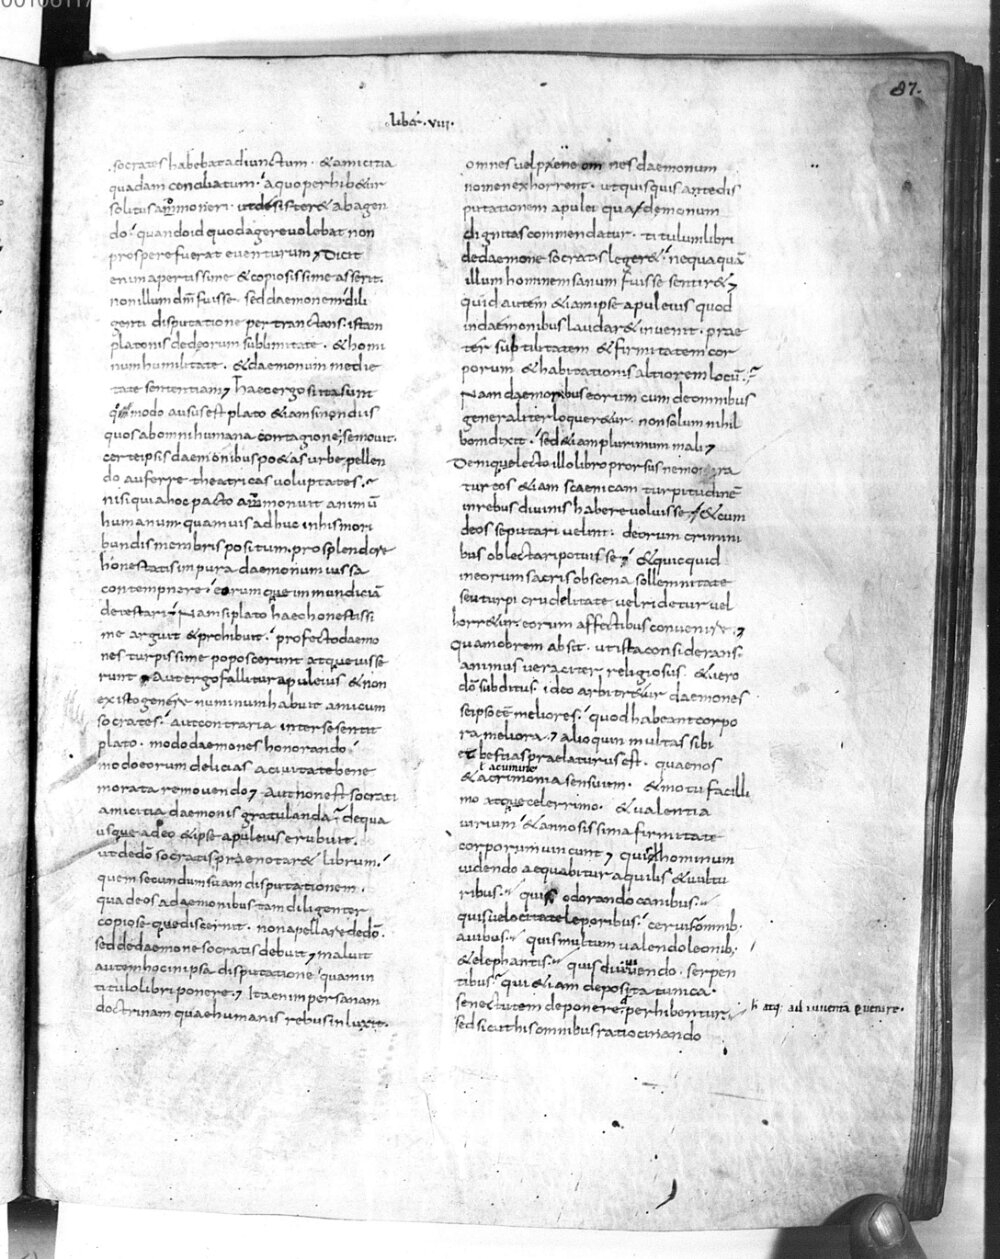 00106117
87.
liber · viii ·
socrates habebat adiunctum · & amicitia
quadam conciliatum · a quo perhib&ur
solitus ammoneri · ut desister& ab agen
do · quando id quod agere volebat non
prospere fuerat eventurum; Dicit
enim apertissime & copiosissime asserit ·
non illum dm̄ fuisse · sed daemonem dili
genti disputatione pertractans · istam
platonis de deorum sublimitate · & homi
num humilitate · & daemonum medie
tate sententiam; haec ergo si ita sunt
quomodo ausus est plato &iamsi non diis
quos ab omni humana contagione semovit ·
certe ipsis daemonibus po&as urbe pellen
do auferre theatricas voluptates ·
nisi quia hoc pacto ammonuit animū
humanum quamvis adhuc in his mori
bundis membris positum · pro splendore
honestatis inpura daemonum iussa
contempnere · eorumque inmundiciā
detestari · Nam si plato haec honestissi
me arguit & prohibuit · profecto daemo
nes turpissime poposcerunt atque iusse
runt · Aut ergo fallitur apuleius & non
ex isto genere numinum habuit amicum
socrates · aut contraria inter se sentit
plato · modo daemones honorando ·
modo eorum delicias a civitate bene
morata removendo; Aut hon est socrati
amicitia daemonis gratulanda · de qua
usque adeo & ipse apuleius erubuit ·
ut de dō socratis praenotar& librum ·
quem secundum suam disputationem ·
qua deos a daemonibus tam diligenter
copiose que discernit · non apellare de dō ·
sed de daemone socratis debuit; maluit
autem hoc in ipsa disputatione quam in
titulo libri ponere; Ita enim per sanam
doctrinam quae humanis rebus inluxit ·
omnes vel paene om nes daemonum
nomen exhorrent · ut quisquis ante dis
putationem apulei qua demonum
dignitas commendatur · titulum libri
de daemone socratis leger& · nequaquā
illum hominem sanum fuisse sentir&;
quid autem &iam ipse apuleius quod
in daemonibus laudar& invenit · prae
ter subtilitatem & firmitatem cor
porum & habitationis altiorem locū ·
Nam de moribus eorum cum de omnibus
generaliter loquer&ur · non solum nihil
boni dixit · sed &iam plurimum mali;
Denique lecto illo libro prorsus nemo mira
tur eos &iam scaenicam turpitudinē
in rebus divinis habere voluisse · & cum
deos se putari velint · deorum crimini
bus oblectari potuisse · & quicquid
in eorum sacris obscena sollemnitate
seu turpi crudelitate vel ridetur vel
horr&ur eorum affectibus convenire;
Quamobrem absit · ut ista considerans ·
animus veraciter religiosus · & vero
dō subditus · ideo arbitr&ur daemones
se ipso eē meliores · quod habeant corpo
ra meliora; alioquin multas sibi
et bestias praelaturus est · quae nos
ł acumine
& acrimonia sensuum · & motu facilli
mo atque celerrimo · & valentia
virium · & annosissima firmitate
corporum vincunt; quis hominum
videndo aequabitur aquilis & vultu
ribus · quis odorando canibus ·
quis velocitate leporibus · cervis omnib ·
avibus · quis multum valendo leonib ·
& elephantis · quis diu vivendo · serpen
tibus · qui &iam deposita tunica ·
senectutem deponere perhibentur ·
sed sicut his omnibus ratiocinando